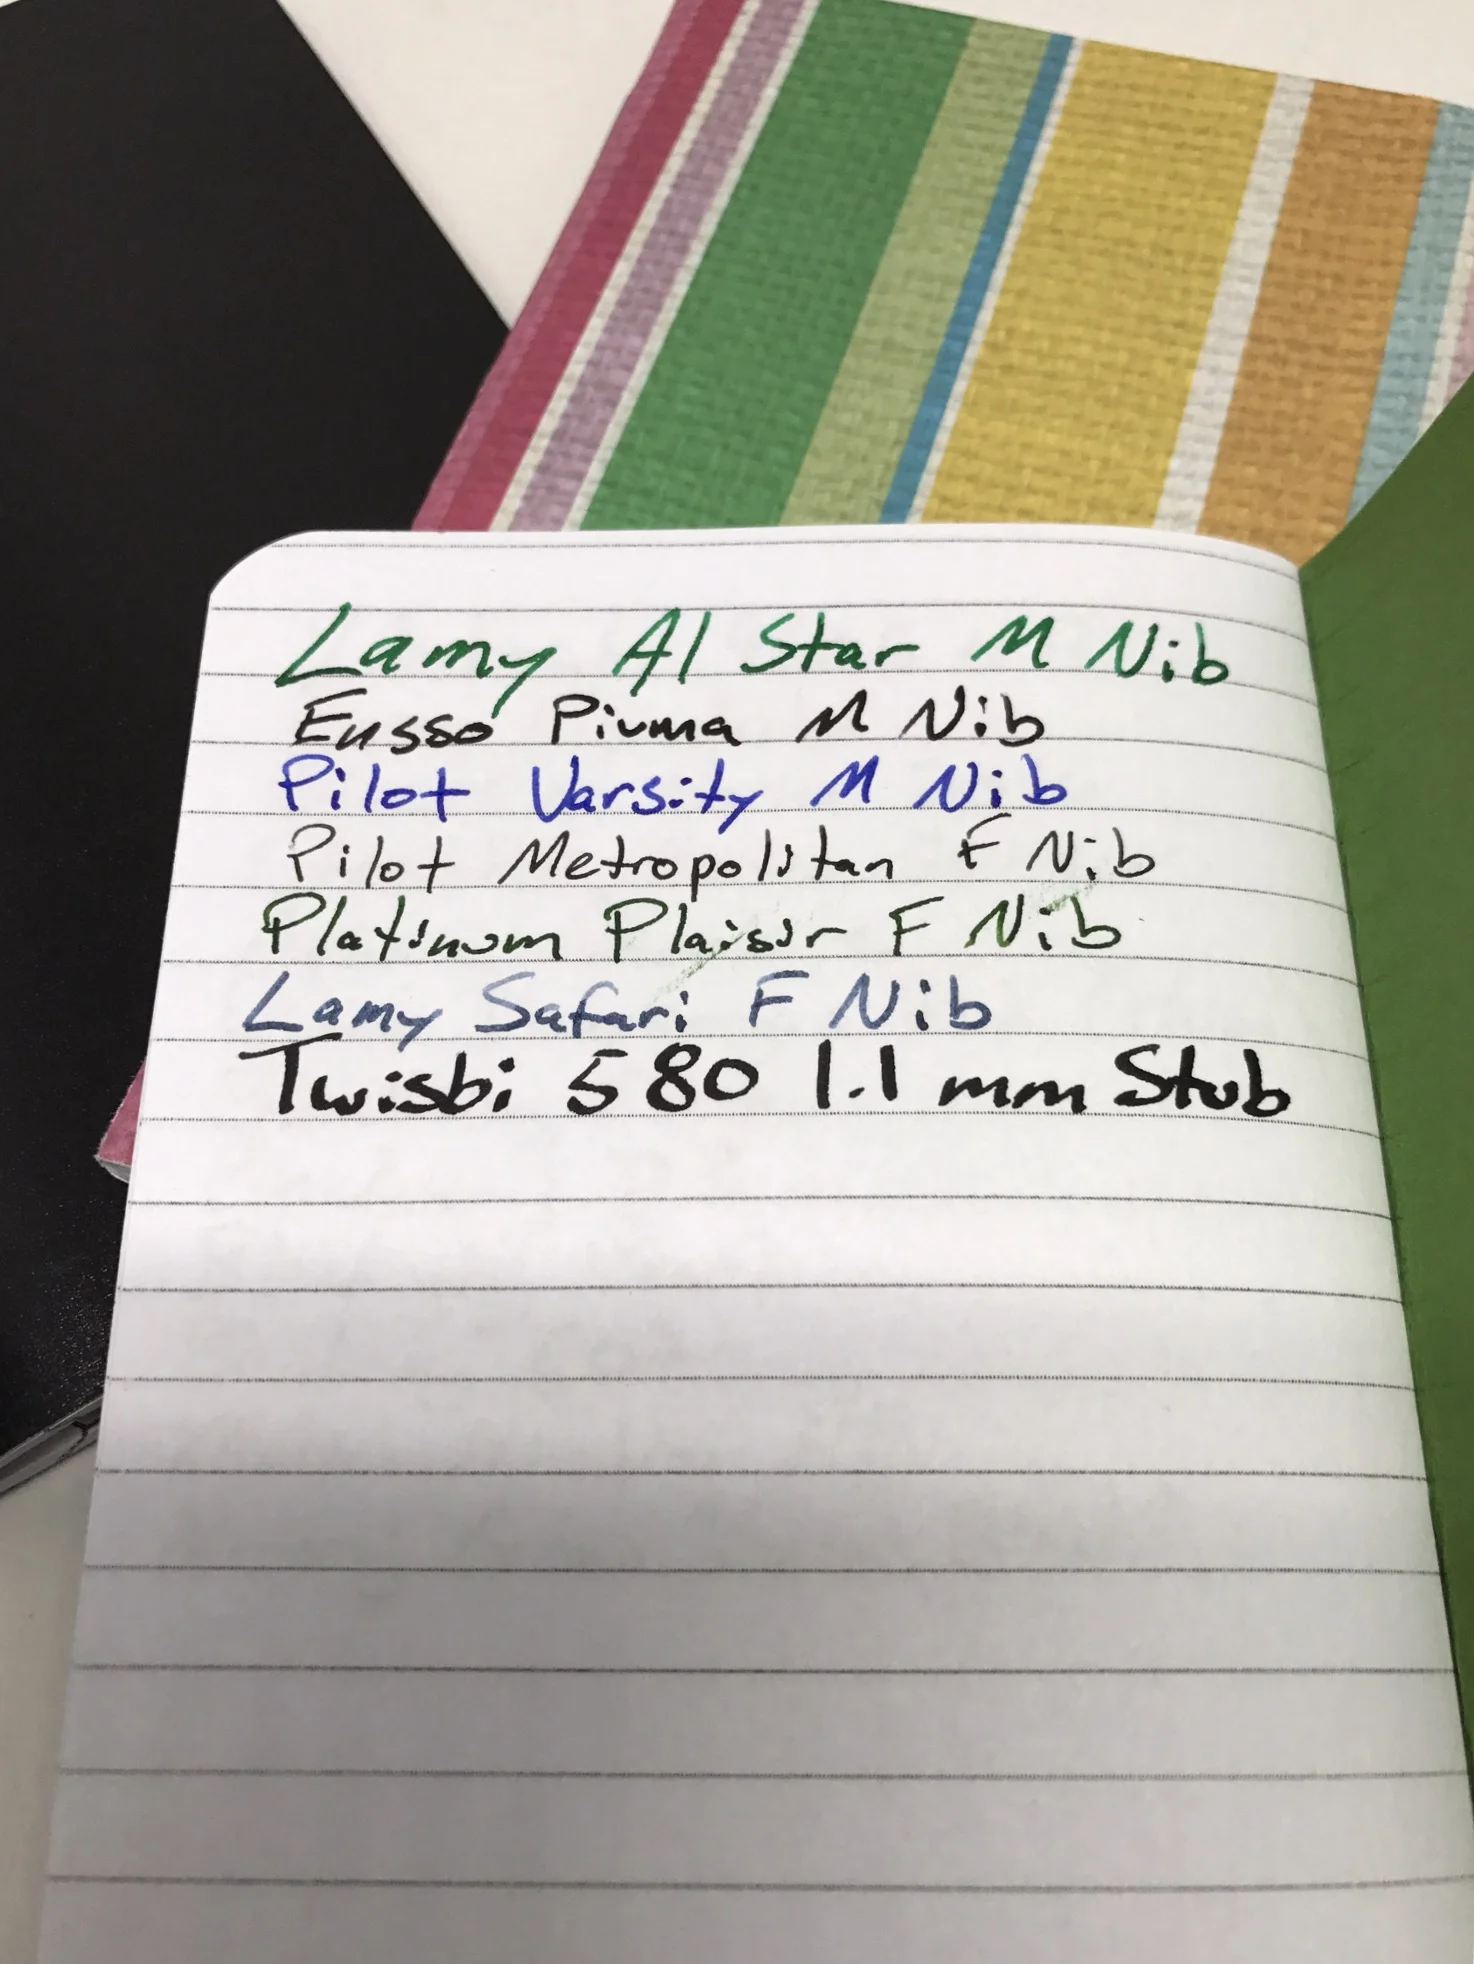 Lamy Al Star M Nib
Ensso Piuma M Nib
Pilot Varsity M Nib
Pilot Metropolitan F Nib
Platinum Plaisir F Nib
Lamy Safari F Nib
Twisbi 580 1.1 mm Stub